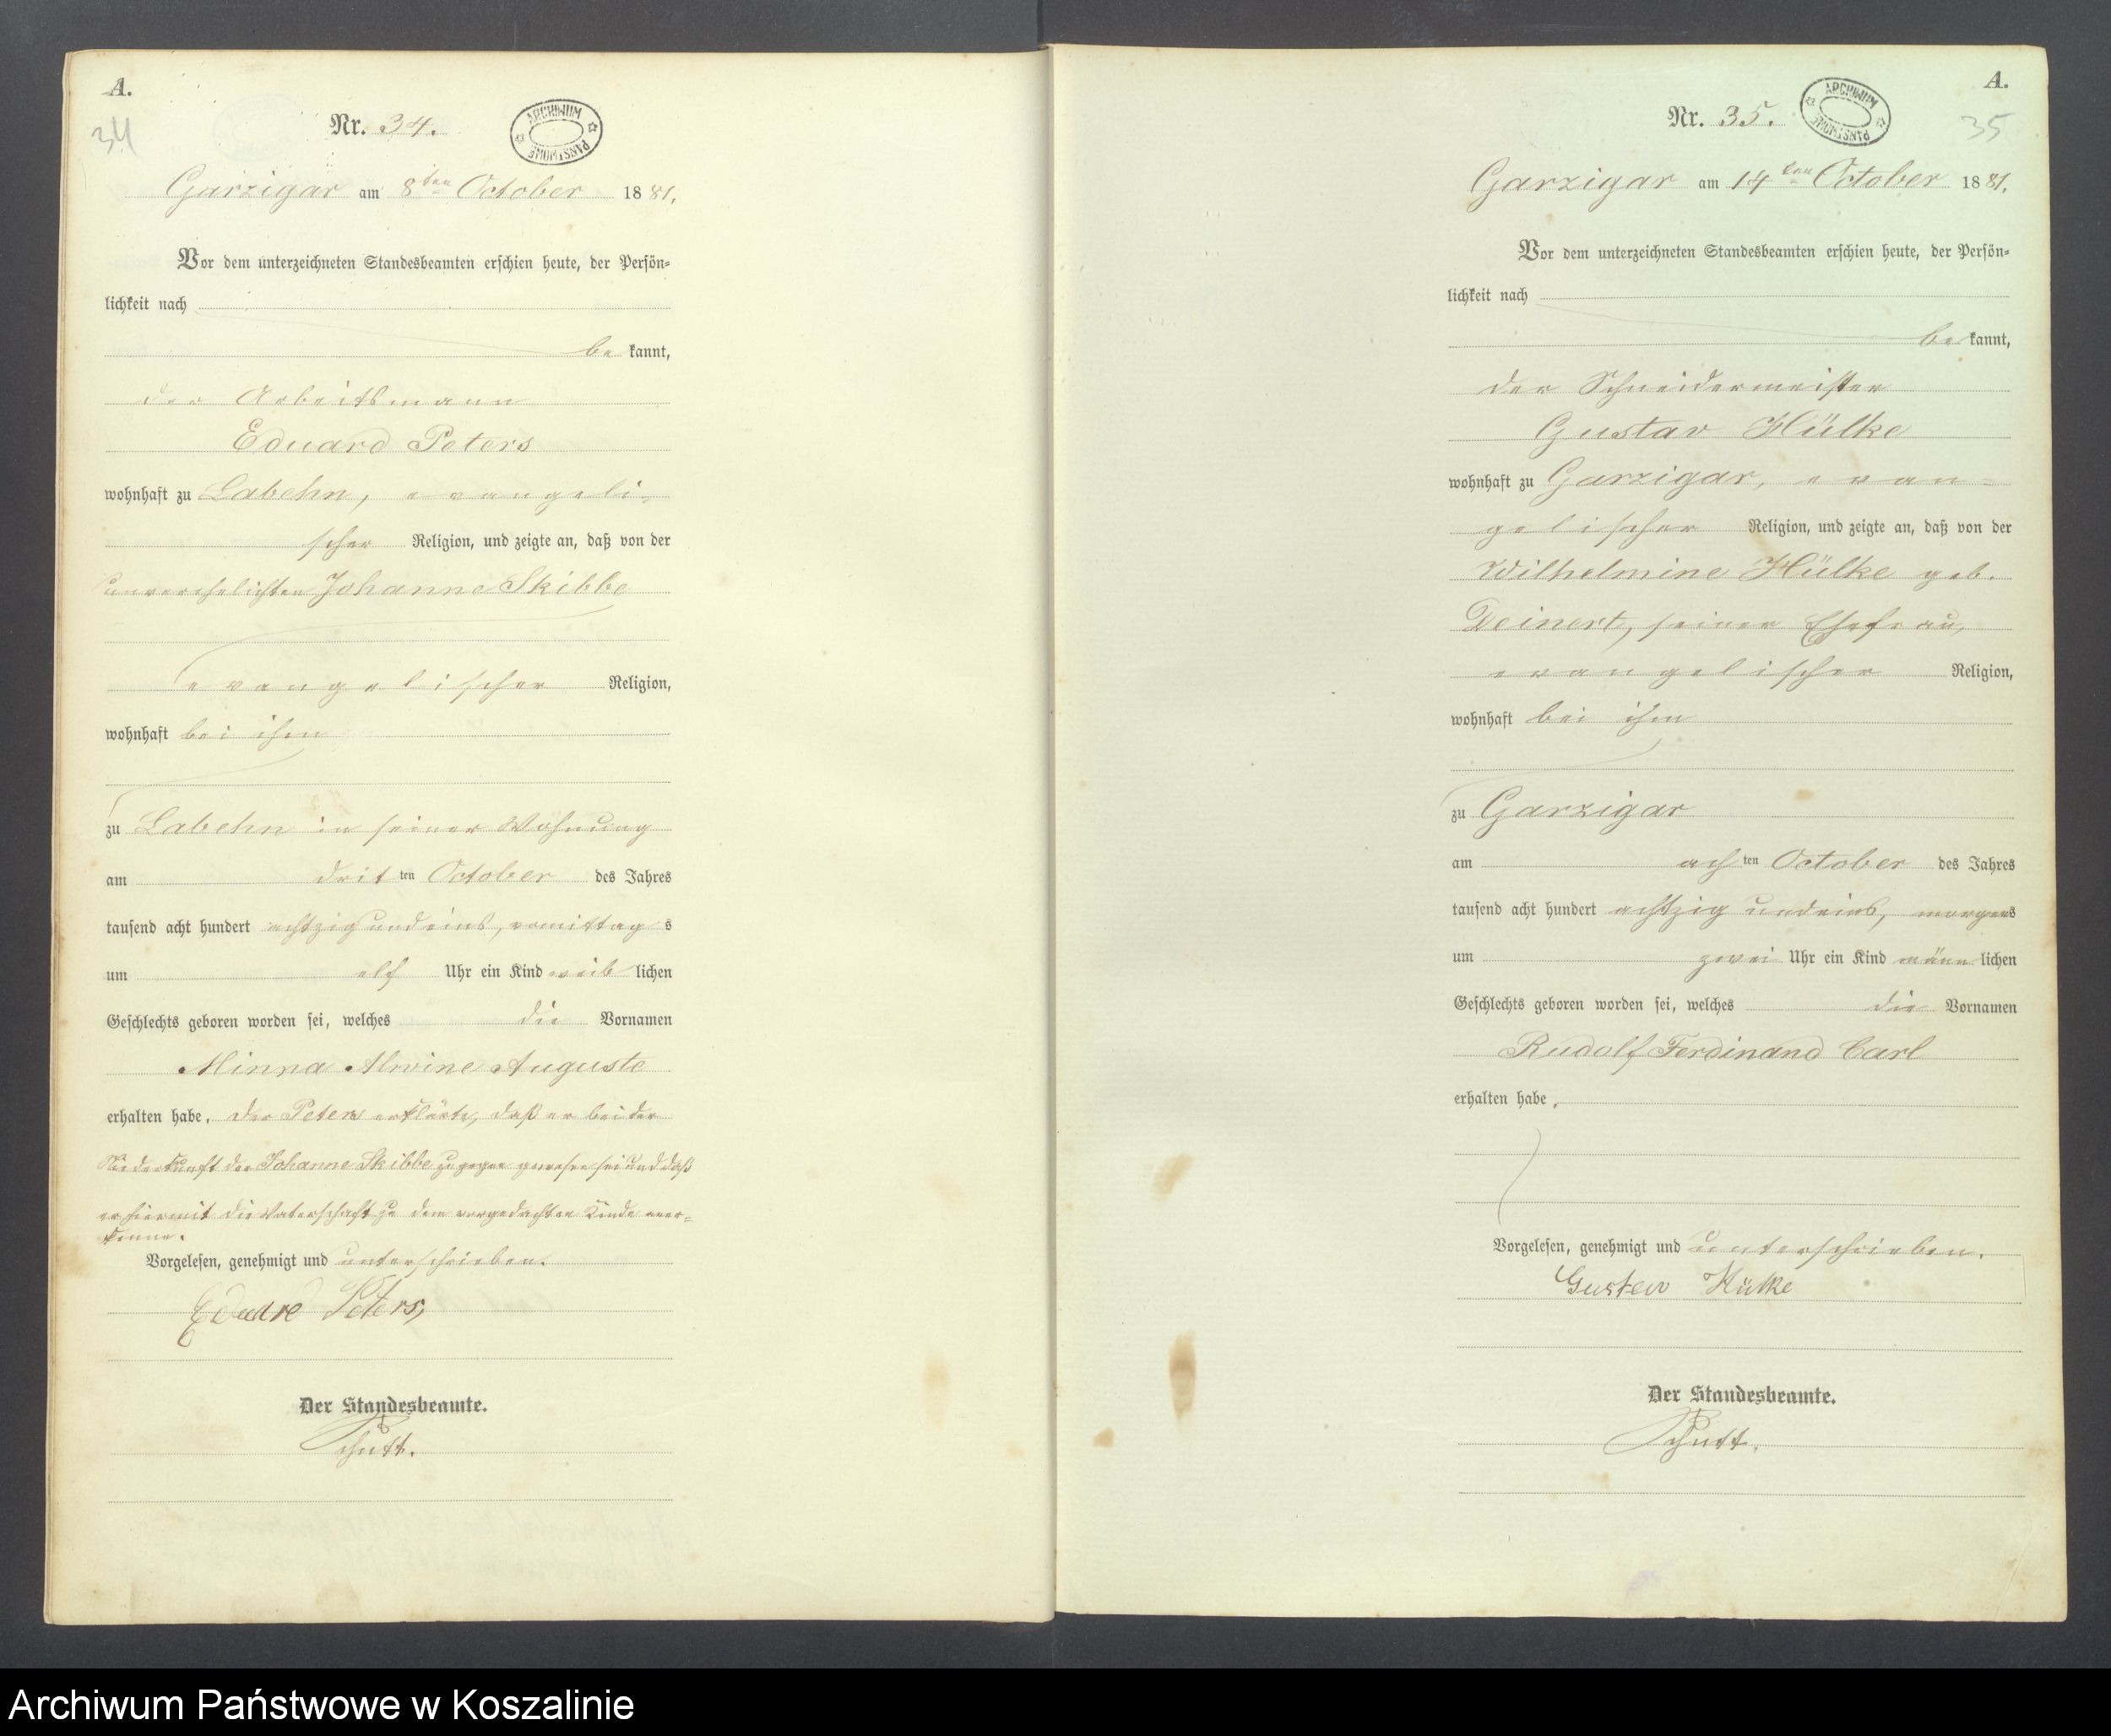 A.
34
Nr. 34.
ARCHIWUM PAŃSTWOWE
Garzigar am 8ten October 1881.
Vor dem unterzeichneten Standesbeamten erschien heute, der Persön-
lichkeit nach
be kannt,
der Arbeitsmann
Eduard Peters
wohnhaft zu Labehn, evangeli-
scher Religion, und zeigte an, daß von der
unverehelichten Johanne Skibbe
evangelischer Religion,
wohnhaft bei ihm
zu Labehn in seiner Wohnung
am drit ten October des Jahres
tausend acht hundert achtzig und eins, vormittag s
um elf Uhr ein Kind weib lichen
Geschlechts geboren worden sei, welches die Vornamen
Minna Alwine Auguste
erhalten habe. Der Peters erklärte, daß er bei der
Niederkunft der Johanne Skibbe zugegen gewesen sei und daß
er hiermit die Vaterschaft zu dem vorgedachten Kinde aner-
kenne.
Vorgelesen, genehmigt und unterschrieben.
Eduard Peters,
Der Standesbeamte.
Schutt.
A.
35
Nr. 35.
ARCHIWUM PAŃSTWOWE
Garzigar am 14ten October 1881.
Vor dem unterzeichneten Standesbeamten erschien heute, der Persön-
lichkeit nach
be kannt,
der Schneidermeister
Gustav Hülke
wohnhaft zu Garzigar, evan-
gelischer Religion, und zeigte an, daß von der
Wilhelmine Hülke geb.
Deinert, seiner Ehefrau,
evangelischer Religion,
wohnhaft bei ihm
zu Garzigar
am ach ten October des Jahres
tausend acht hundert achtzig und eins, morgens
um zwei Uhr ein Kind männ lichen
Geschlechts geboren worden sei, welches die Vornamen
Rudolf Ferdinand Carl
erhalten habe.
Vorgelesen, genehmigt und unterschrieben.
Gustav Hülke
Der Standesbeamte.
Schutt.
Archiwum Państwowe w Koszalinie